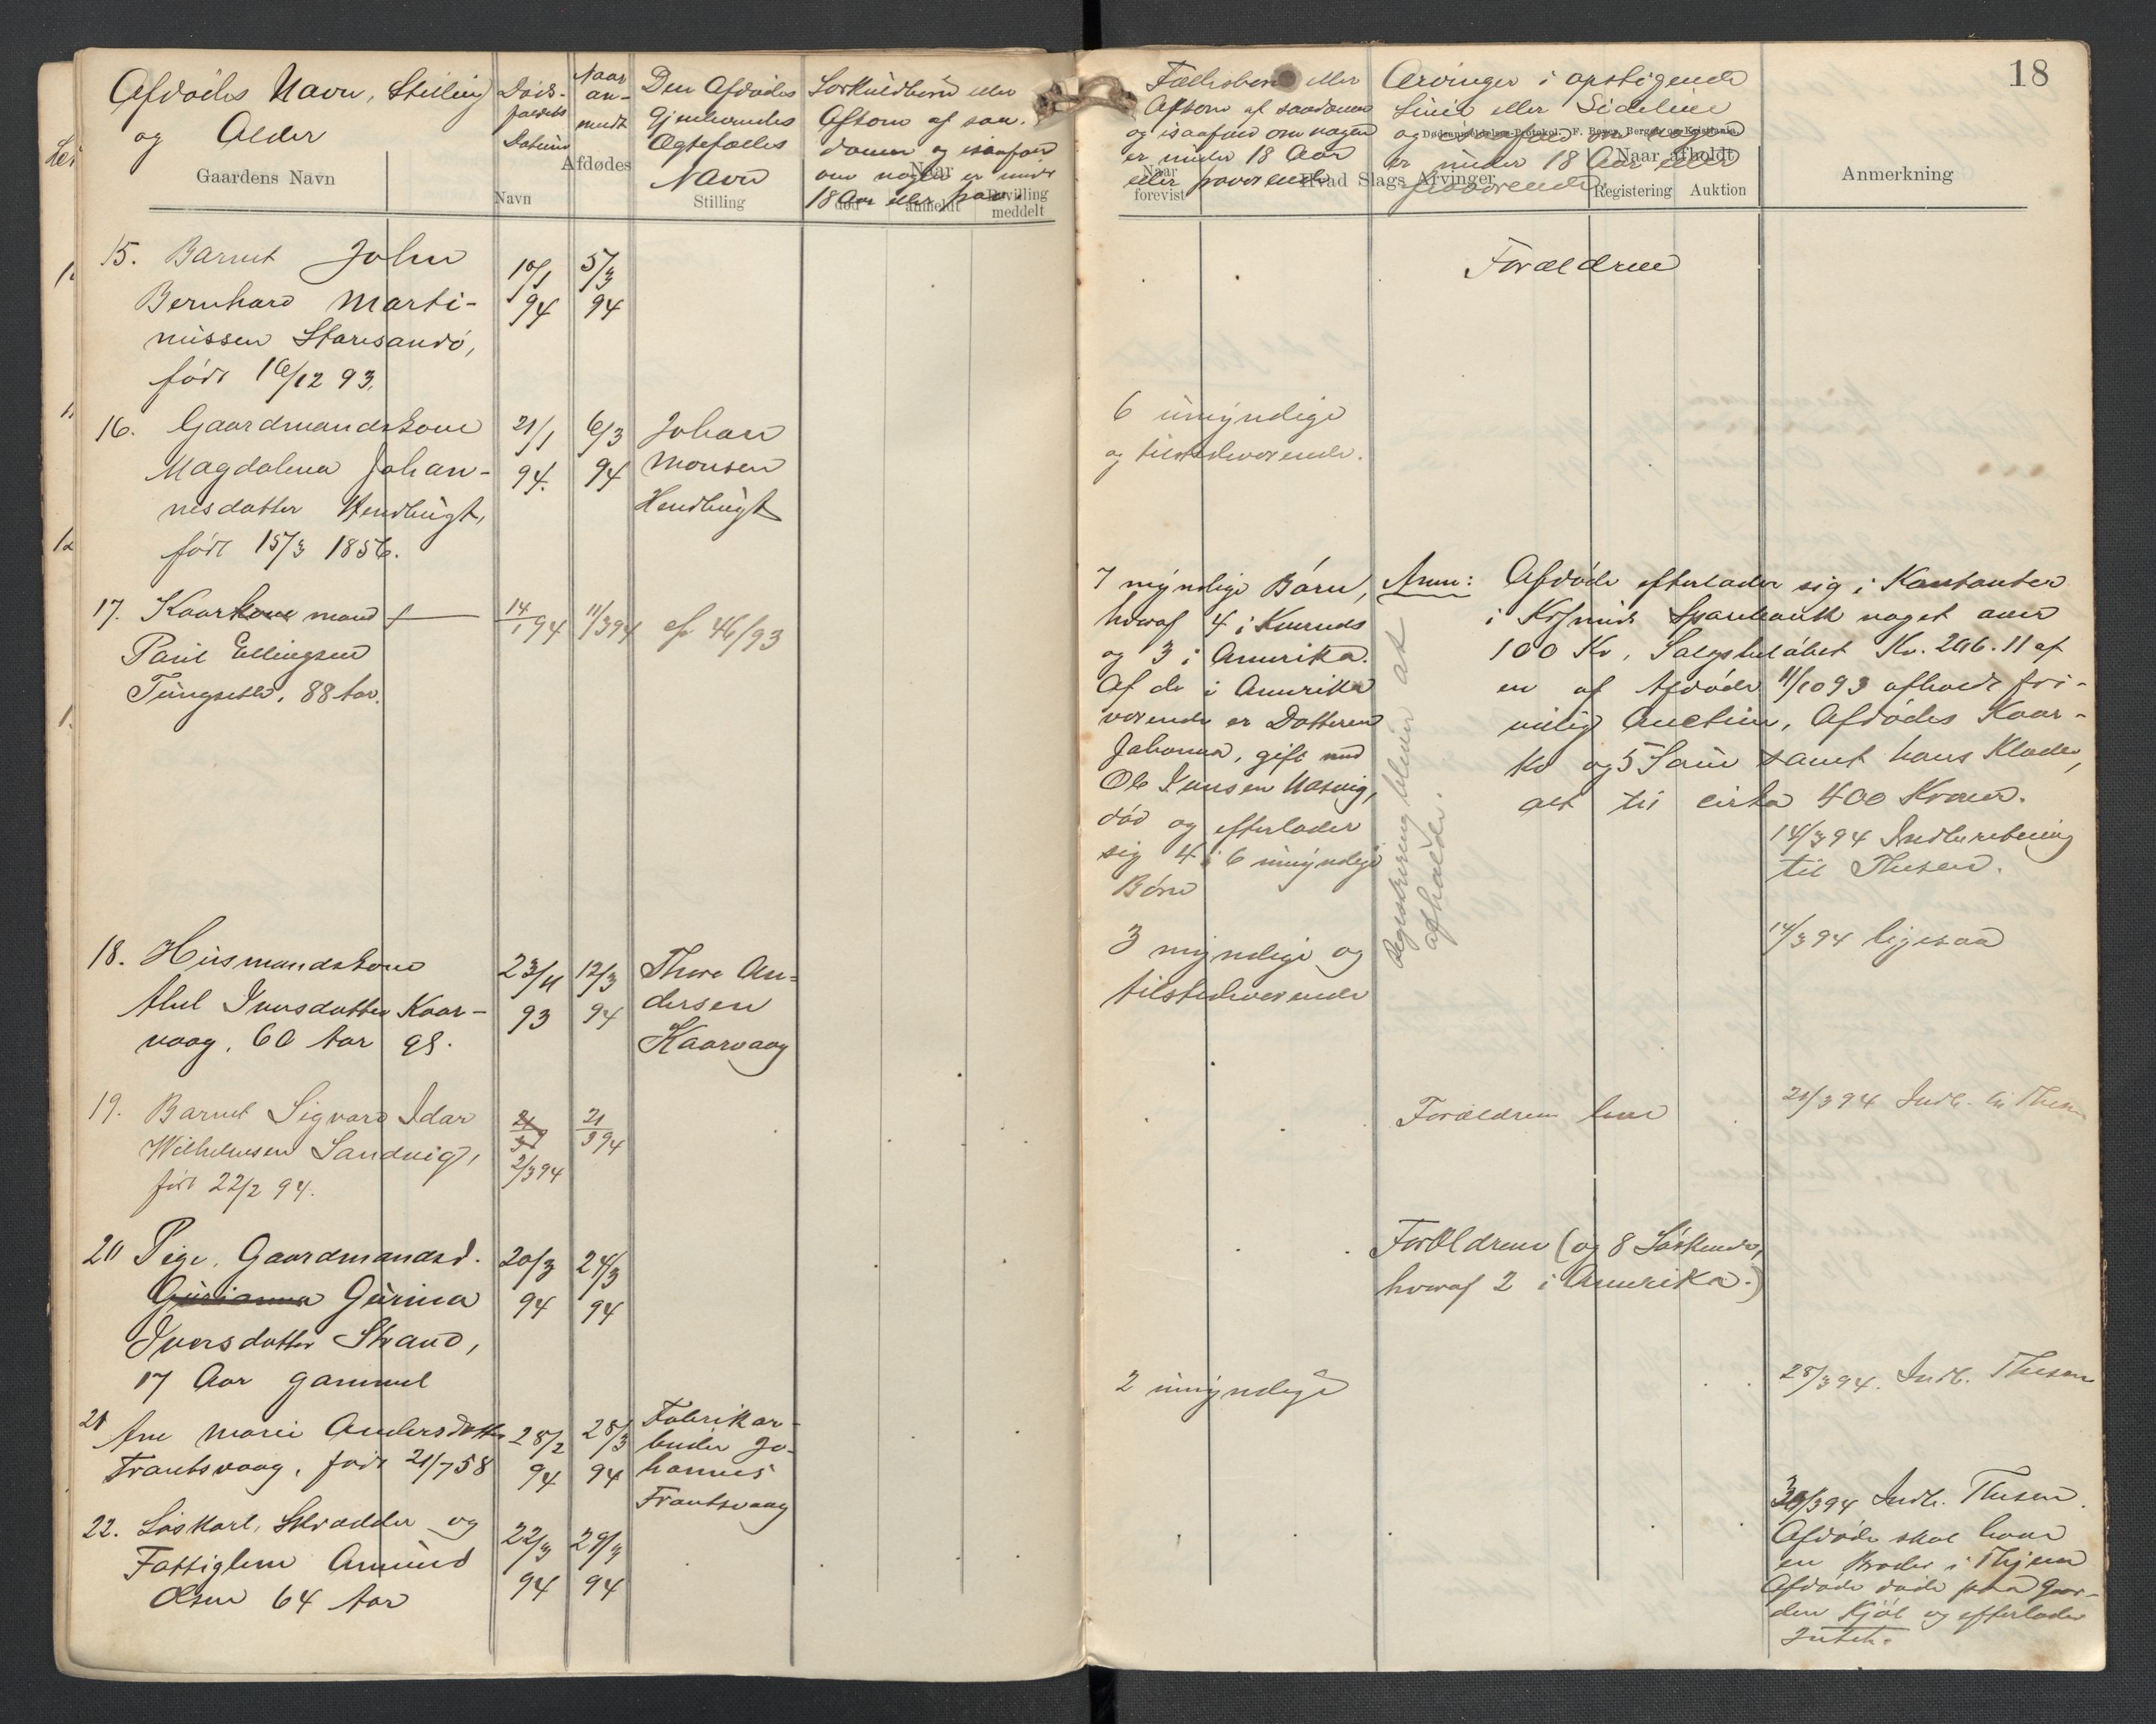 18
Afdødes Navn, Stilling
og Alder
Gaardens Navn
Døds-
faldets
Datum
Navn
Naar
an-
meldt
Afdødes
Den Afdødes
Gjenlevendes
Ægtefælles
Navn
Stilling
Særkuldbørn eller
Afkom af saa-
danne og isaafald
om nogen er under
18 Aar eller
Naar
død
anmeldt
Bevilling
meddelt
Fællesbørn eller
Afkom af saadanne
og isaafald om nogen
er under 18 Aar
eller fraværende
Naar
forevist
Arvinger i opstigende
Linie eller Sidelinie
og isaafald om nogen
er under 18 Aar eller
fraværende.
Dødsanmeldelses-Protokol. F. Beyer, Bergen og Kristiania.
Hvad Slags Arvinger
Naar afholdt
Registering
Auktion
Anmerkning
15. Barnet John
Bernhard Marti-
nussen Starisandø,
født 16/12 93.
10/1
94
5/3
94
Forældrene
16. Gaardmandskone
Magdalena Johan-
nesdatter Hendbugt,
født 15/3 1856.
21/1
94.
6/3
94
Johan
Monsen
Hendbugt
6 umyndige
og tilstedeværende.
17. Kaarkone mand
Paul Ellingsen
Tungseth, 88 Aar.
14/1 94
11/3 94
cfr 46/93
7 myndige Børn,
hvoraf 4 i Kværnæs
og 3 i Amerika.
Af de i Amerika
værende er Datteren
Johanna, gift med
Ole Iversen Hasvig,
død og efterlader
sig 4 à 6 umyndige
Børn
Registrering bliver at
afholde.
Anm: Afdøde efterlader sig i Kontanter
i Krsunds Sparebank noget over
100 Kr, Salgsbeløbet Kr. 206.11 af
en af Afdøde 11/10 93 afholdt fri-
villig Auction, Afdødes Kaar-
ko og 5 Sauer samt hans Klæder,
alt til cirka 400 Kroner.
14/3 94 Indberetning
til Thesen.
18. Husmandskone
Ahel Iversdatter Kaar-
vaag, 60 Aar gl.
23/11
93
12/3
94
Thore An-
dersen
Kaarvaag
3 myndige og
tilstedeværende
14/3 94 ligesaa
19. Barnet Sigvard Idar
Wilhelmsen Sandvig,
født 22/2 94.
2/3 94
21/3 94
Forældrene lever
21/3 94 Indb. til Thesen
20 Pige, Gaardmandsd.
Gurianna Gurina
Iversdatter Strand,
17 Aar gammel
20/3
94
24/3
94
Forældrene (og 8 Søskende,
hvoraf 2 i Amerika.)
21 Ane Marie Andersdatter
Frantsvaag, født 21/7 58
28/2
94
28/3
94
Fabrikar-
beider Jo-
hannes
Frantsvaag
2 umyndige
28/3 94. Indb. Thesen
22. Løskarl, Skrædder og
Fattiglem Amund
Olsen 64 Aar
22/3
94
29/3
94
30/3 94 Indb. Thesen.
Afdøde skal have
en Broder i Thjem
Afdøde døde paa Gaar-
den Kjøl og efterlader
Intet.